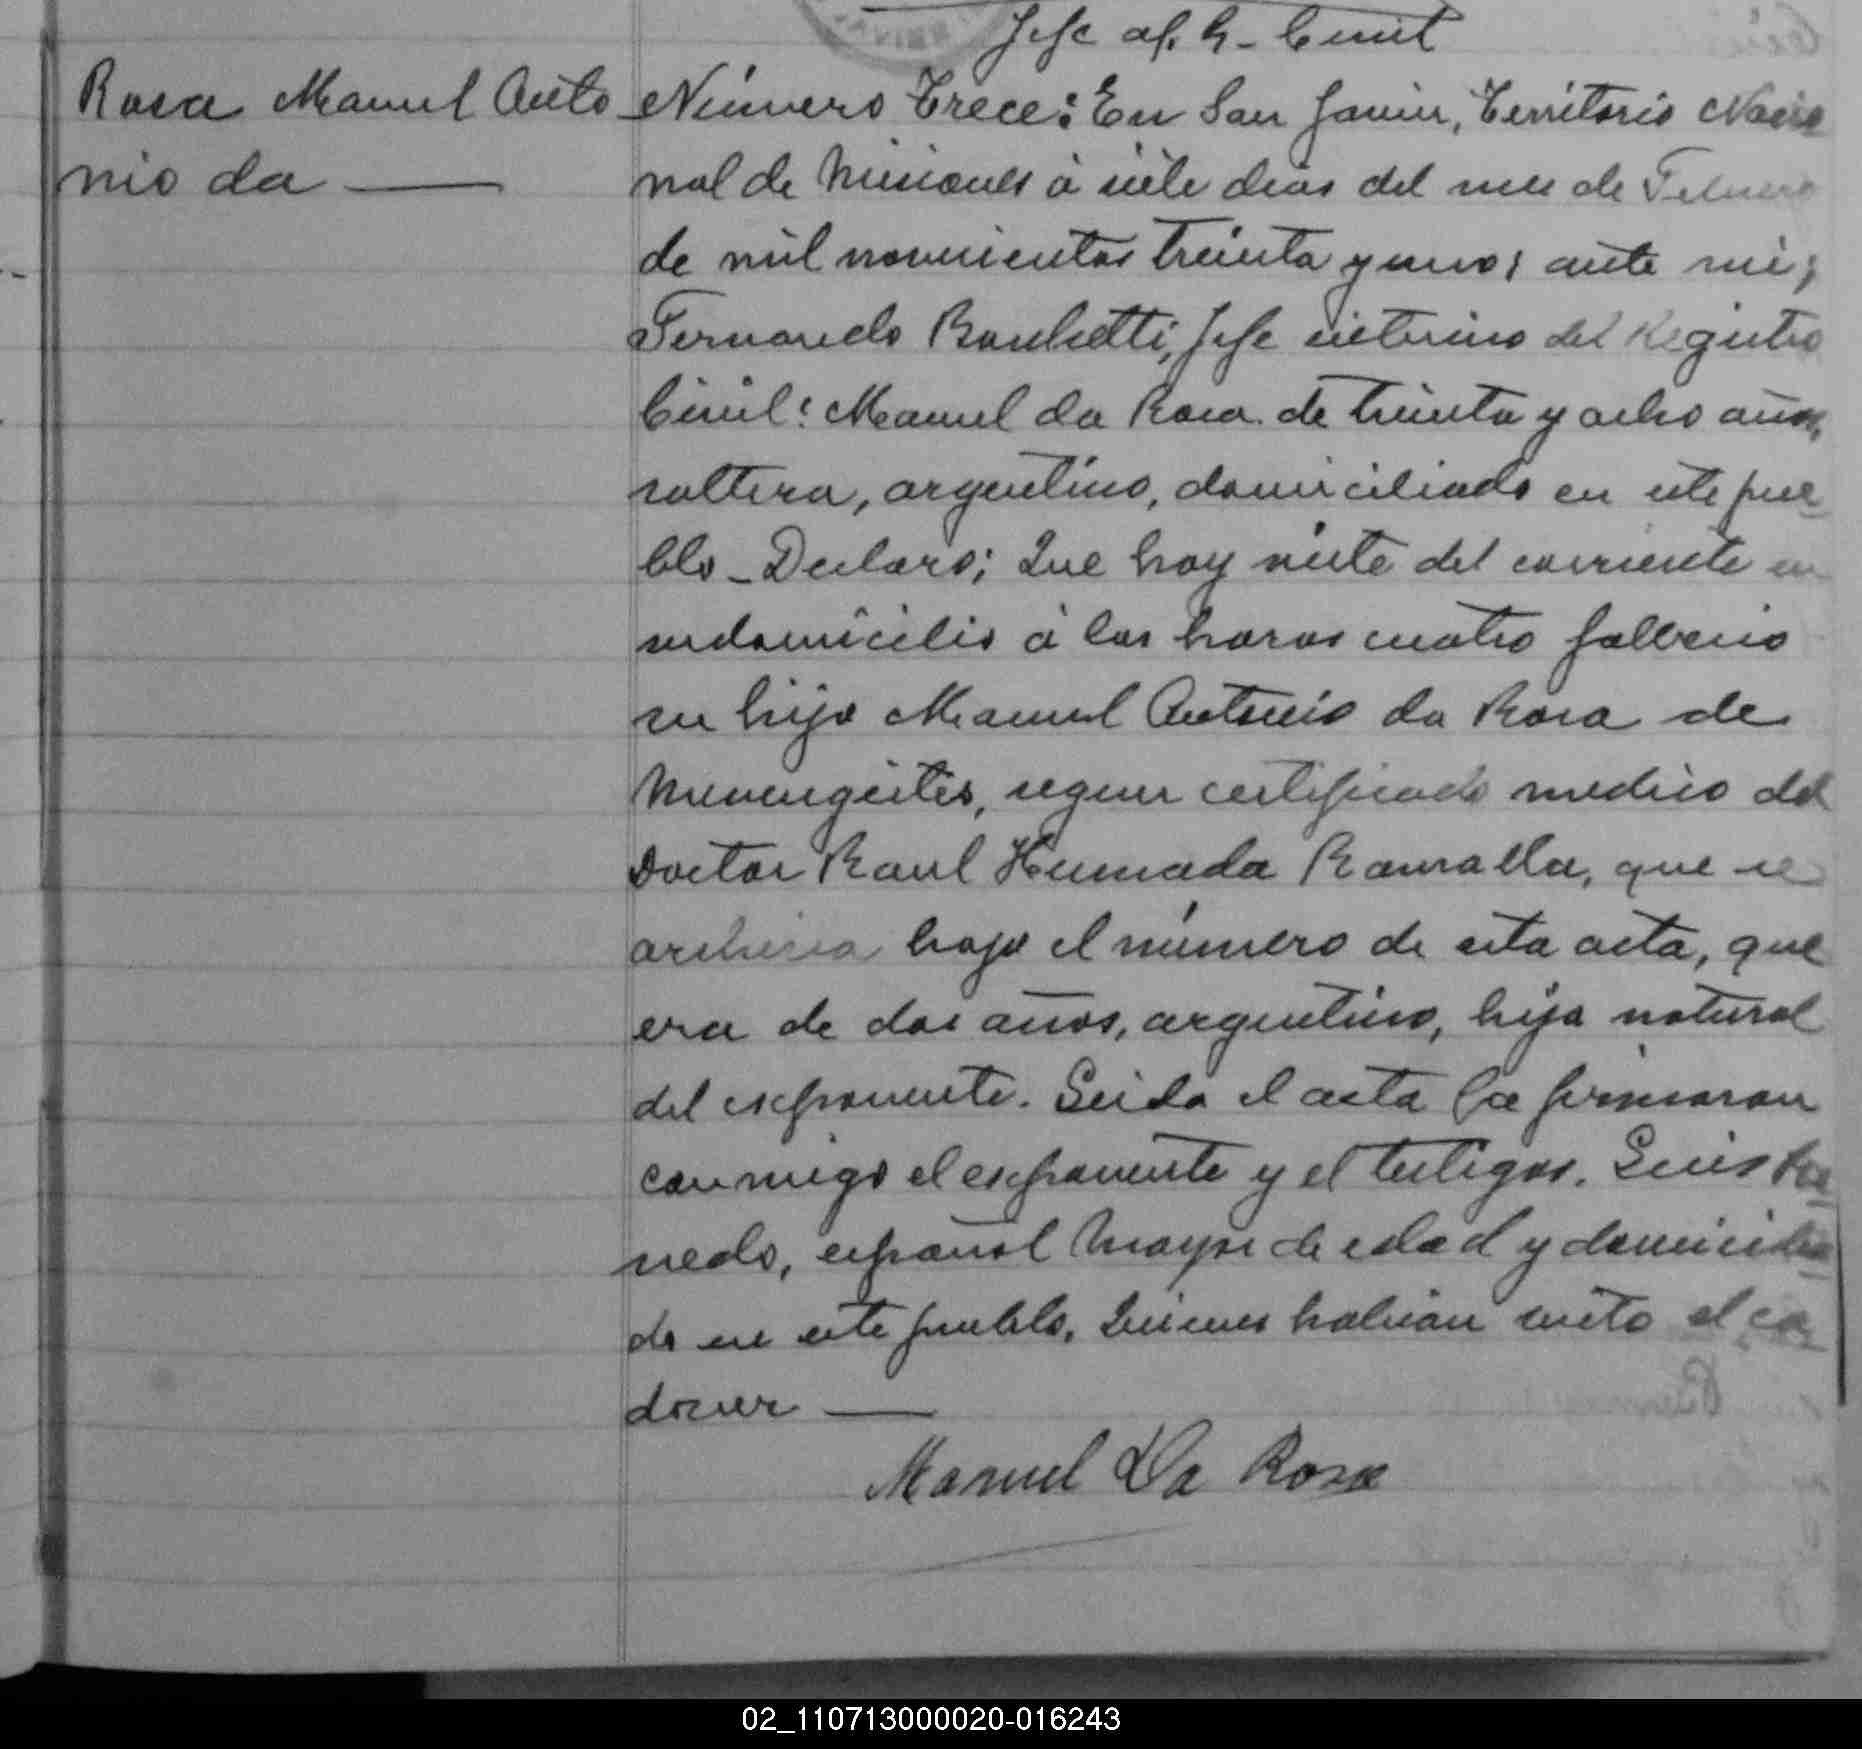 Jefe of. R- Civil
Rosa Manuel Anto
nio da
Número Trece: En San Javier, Territorio Nacio
nal de Misiones á siete dias del mes de Febrero
de mil novecientos treinta y uno; ante mi;
Fernando Jefe interino del Registro
Civil: Manuel da Rosa de treinta y ocho años,
soltero, argentino, domiciliado en este pue
blo - Declaro; Que hoy siete del corriente en
su domicilio á las horas cuatro fallecio
su hijo Manuel Antonio da Rosa de
Menengitis, segun certificado medico del
Doctor Raul Humada Ramalla, que se
archiva bajo el número de esta acta, que
era de dos años, argentino, hijo natural
del exponente. Leida el acta la firmaron
conmigo el exponente y el testigos. Luis
nedo, español mayor de edad y domicilia
do en este pueblo, Quienes habian visto el ca
daver
Manuel Da Rosa
02_110713000020-016243